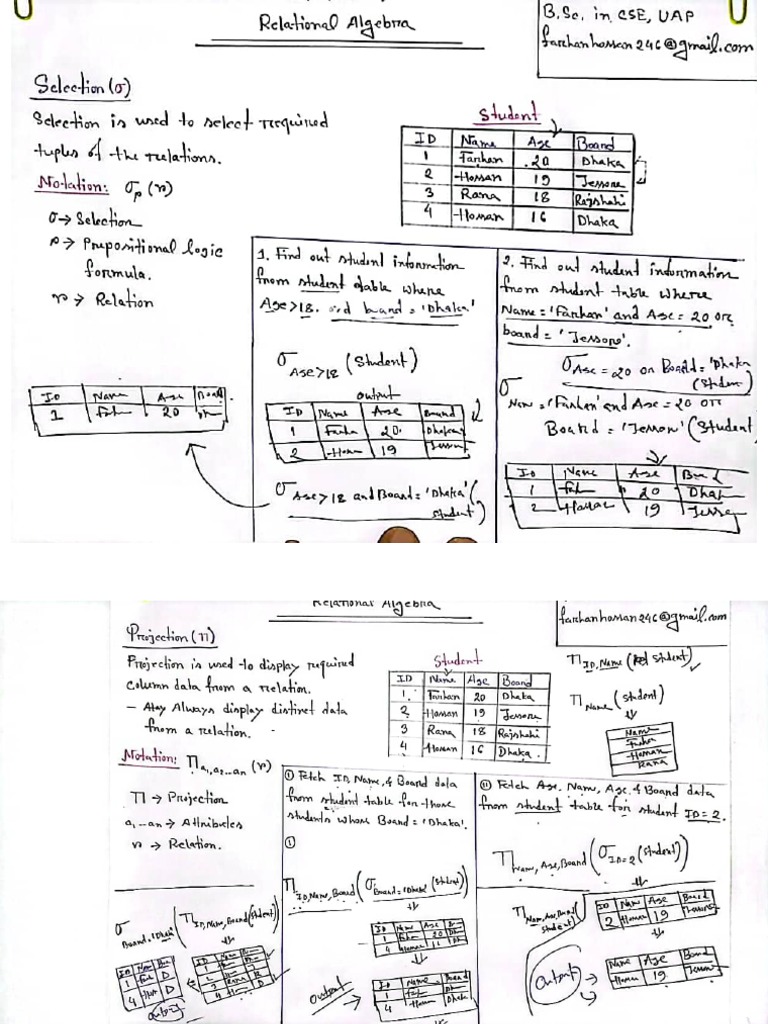 Relational Algebra
B.Sc. in CSE, UAP
farhanhossan246@gmail.com
Selection (σ)
Selection is used to select required
tuples of the relations.
Notation: σp (r)
σ → Selection
p → Prepositional logic
formula.
r → Relation
Student
ID Name Age Board
1 Farhan 20 Dhaka
2 Hossan 19 Jessore
3 Rana 18 Rajshahi
4 Hossan 16 Dhaka
1. Find out student information
from student table where
Age>18. and board = 'Dhaka'
σ Age>18 (Student)
output
ID Name Age Board
1 20
2 19
σ Age>18 and Board = 'Dhaka' (
Student)
ID Name Age Board
1 20
2. Find out student information
from student table where
Name = 'Farhan' and Age = 20 or
board = 'Jessore'.
σ Age = 20 or Board = 'Dhaka
(Student)
σ
Name = 'Farhan' and Age = 20 or
Board = 'Jessore' (Student
ID Name Age
1 20
2 19
Relational Algebra
farhanhossan246@gmail.com
Projection (Π)
Projection is used to display required
column data from a relation.
- Always display distinct data
from a relation.
Notation: Π a1, a2...an (r)
Π → Projection
a1...an → Attributes
r → Relation.
Student
ID Name Age Board
1. Farhan 20 Dhaka
2 Hossan 19 Jessore
3 Rana 18 Rajshahi
4 Hossan 16 Dhaka
Π ID, Name (Student)
Π Name (Student)
Name
Farhan
Hossan
Rana
(i) Fetch ID, Name, & Board data
from student table for those
students whose Board = 'Dhaka'.
(i)
Π ID, Name, Board (σ Board = 'Dhaka' (Student))
ID Name Age
1 20
4 16
Output
ID Name Board
1
4 Dhaka
(ii) Fetch Age, Name, Age, & Board data
from student table for student ID = 2.
Π Name, Age, Board (σ ID=2 (Student))
Π Name, Age, Board (
Student)
ID Name Age Board
2 Hossan 19 Jessore
Output
Name Age Board
19
σ Board = 'Dhaka' (Π ID, Name, Board (Student)
ID Name
1
4
Output